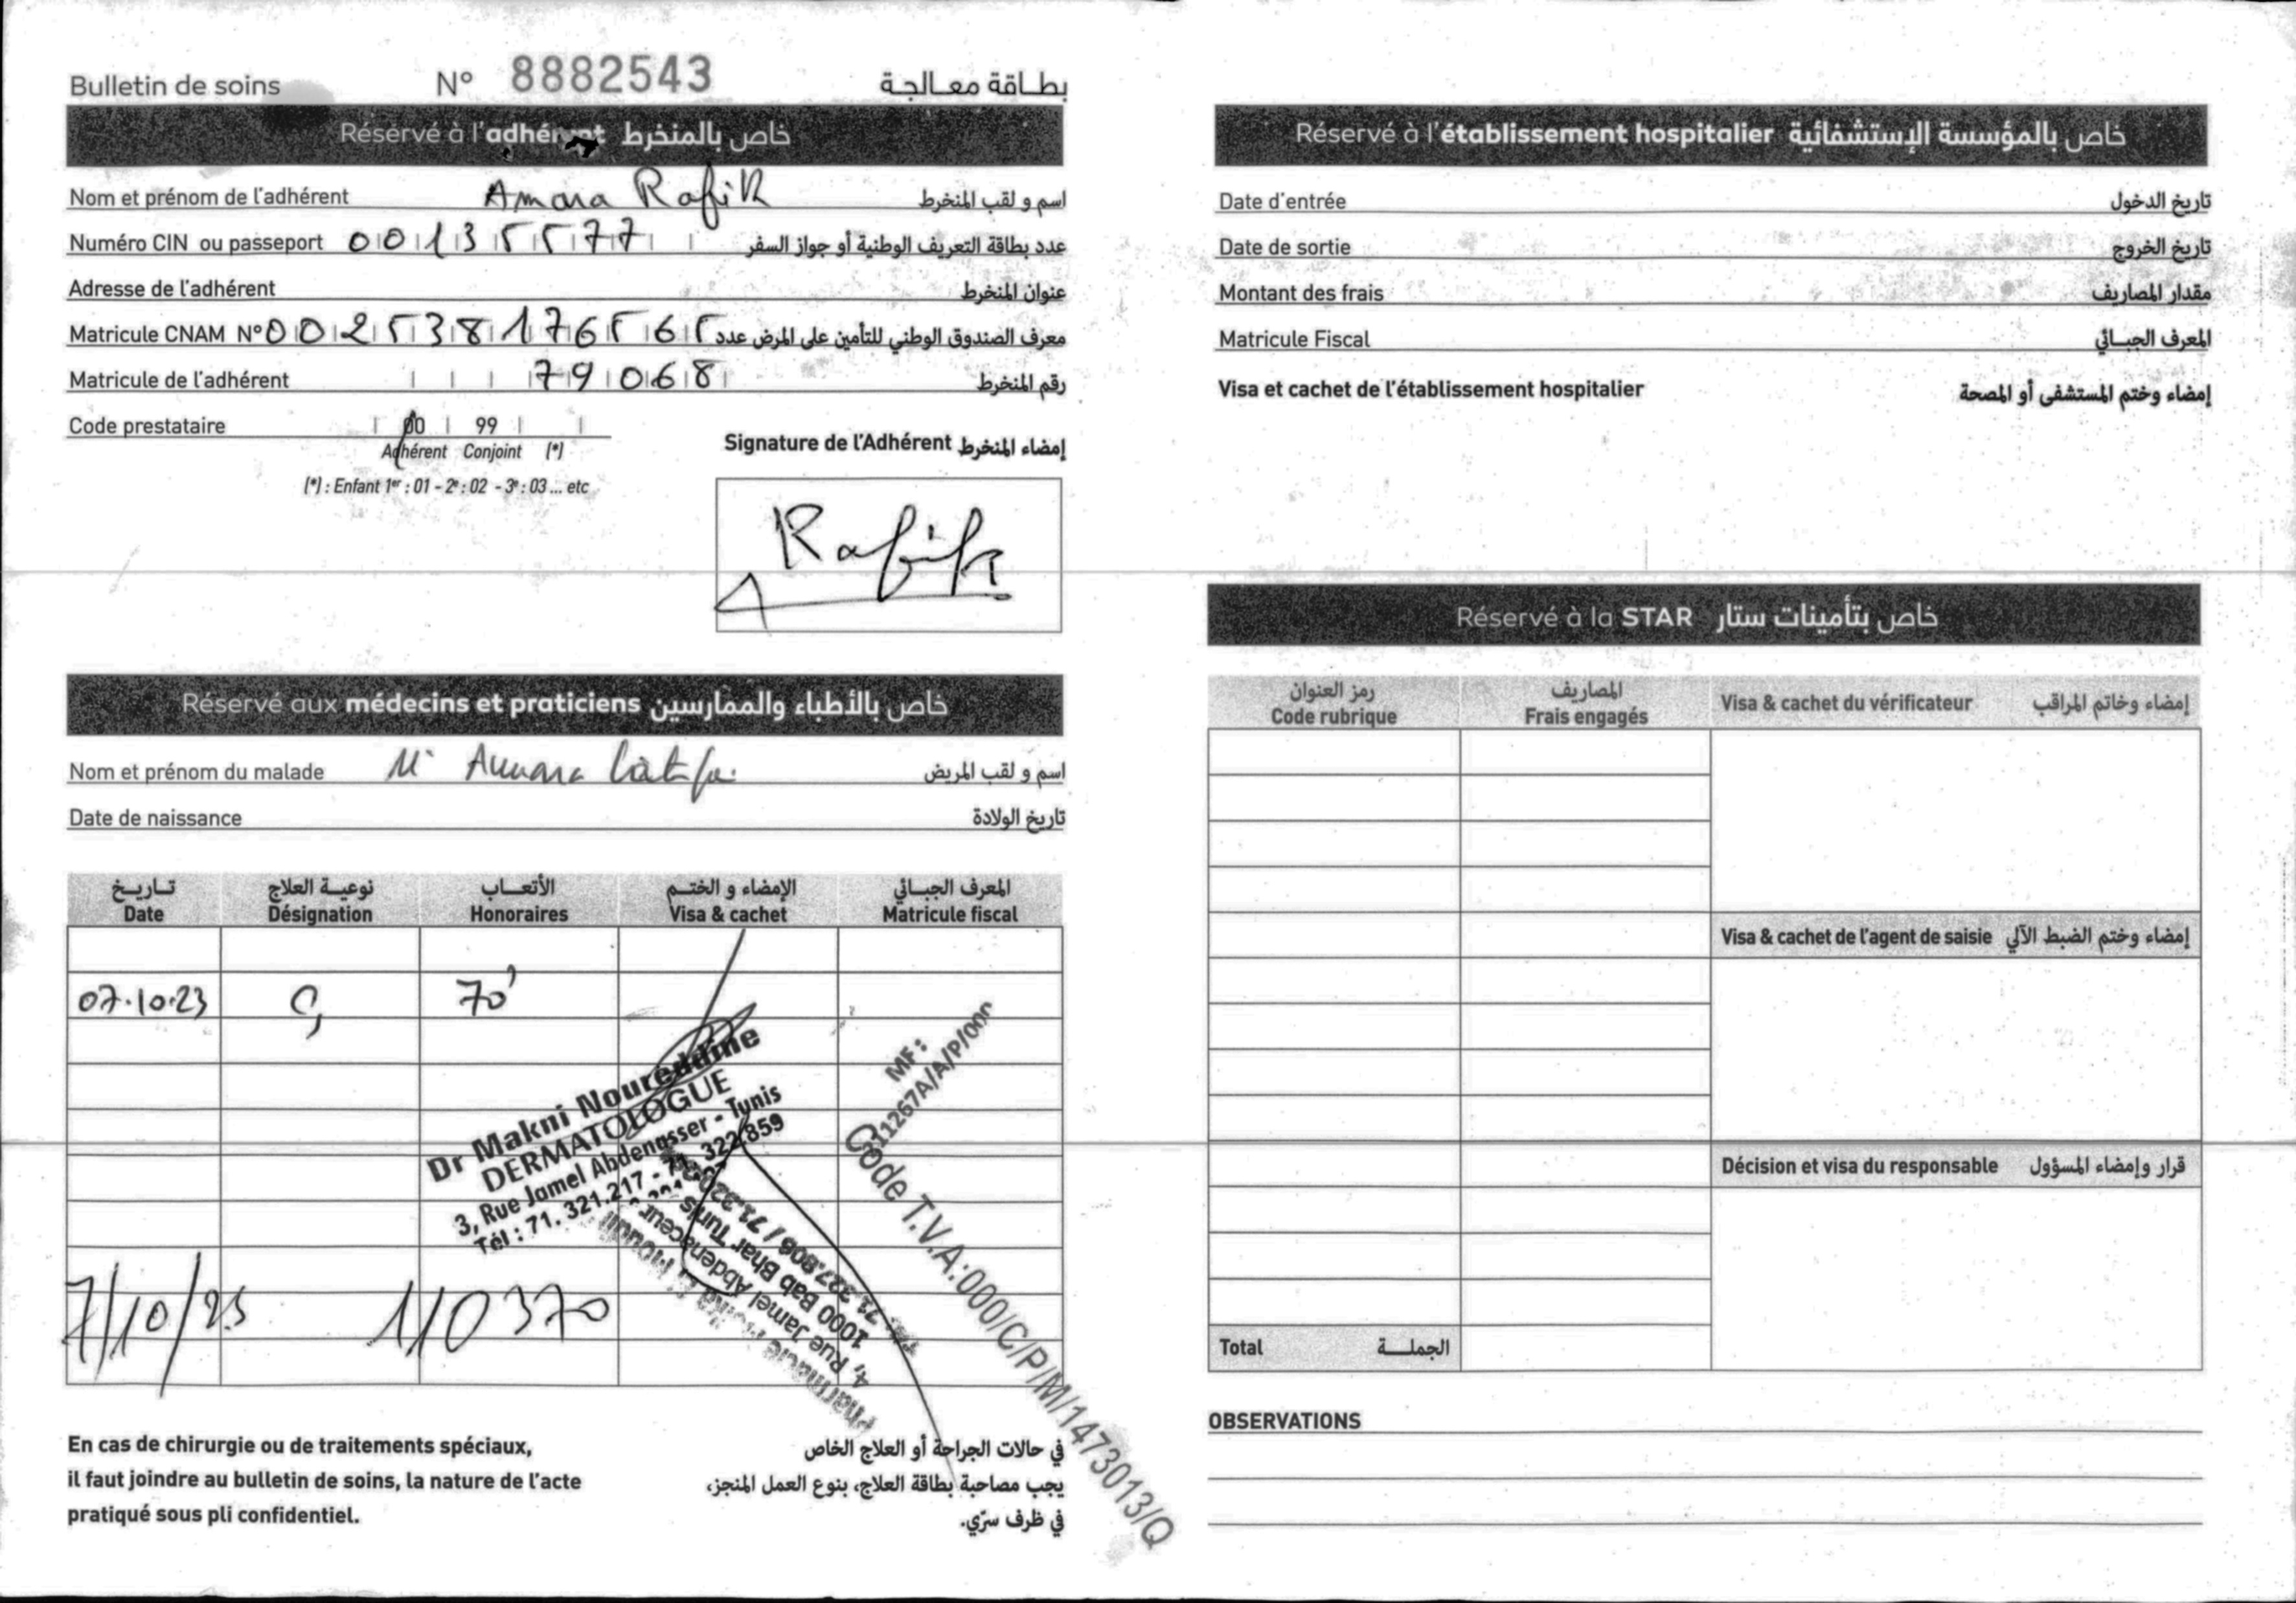 Bulletin de soins N° 8882543 بطاقة معالجة
Réservé à l'adhérent خاص بالمنخرط
Nom et prénom de l'adhérent Amara Rafik اسم و لقب المنخرط
Numéro CIN ou passeport 00135577 عدد بطاقة التعريف الوطنية أو جواز السفر
Adresse de l'adhérent عنوان المنخرط
Matricule CNAM N° 002538176565 معرف الصندوق الوطني للتأمين على المرض عدد
Matricule de l'adhérent 79068 رقم المنخرط
Code prestataire 00 99
Adhérent Conjoint (*)
(*) : Enfant 1er : 01 - 2e : 02 - 3e : 03 ... etc
Signature de l'Adhérent إمضاء المنخرط
Rafik
Réservé aux médecins et praticiens خاص بالأطباء والممارسين
Nom et prénom du malade Amara اسم و لقب المريض
Date de naissance تاريخ الولادة
تاريخ نوعية العلاج الأتعاب الإمضاء و الختم المعرف الجبائي
Date Désignation Honoraires Visa & cachet Matricule fiscal
07.10.23 C 70
Dr Makni Noureddine
DERMATOLOGUE
3, Rue Jamel Abdenasser - Tunis
Tél : 71. 321.217 - 71. 322.859
MF :
311267A/A/P/000
7/10/23 110370
Pharmacie
4, Rue Jamel Abdenaceur
1000 Bab Bhar Tunis
Code T.V.A:000/C/P/M/1473013/Q
En cas de chirurgie ou de traitements spéciaux,
il faut joindre au bulletin de soins, la nature de l'acte
pratiqué sous pli confidentiel.
في حالات الجراحة أو العلاج الخاص
يجب مصاحبة بطاقة العلاج، بنوع العمل المنجز،
في ظرف سرّي.
Réservé à l'établissement hospitalier خاص بالمؤسسة الإستشفائية
Date d'entrée تاريخ الدخول
Date de sortie تاريخ الخروج
Montant des frais مقدار المصاريف
Matricule Fiscal المعرف الجبائي
Visa et cachet de l'établissement hospitalier إمضاء وختم المستشفى أو المصحة
Réservé à la STAR خاص بتأمينات ستار
رمز العنوان المصاريف
Code rubrique Frais engagés Visa & cachet du vérificateur إمضاء وخاتم المراقب
Visa & cachet de l'agent de saisie إمضاء وختم الضبط الآلي
Décision et visa du responsable قرار وإمضاء المسؤول
Total الجملة
OBSERVATIONS